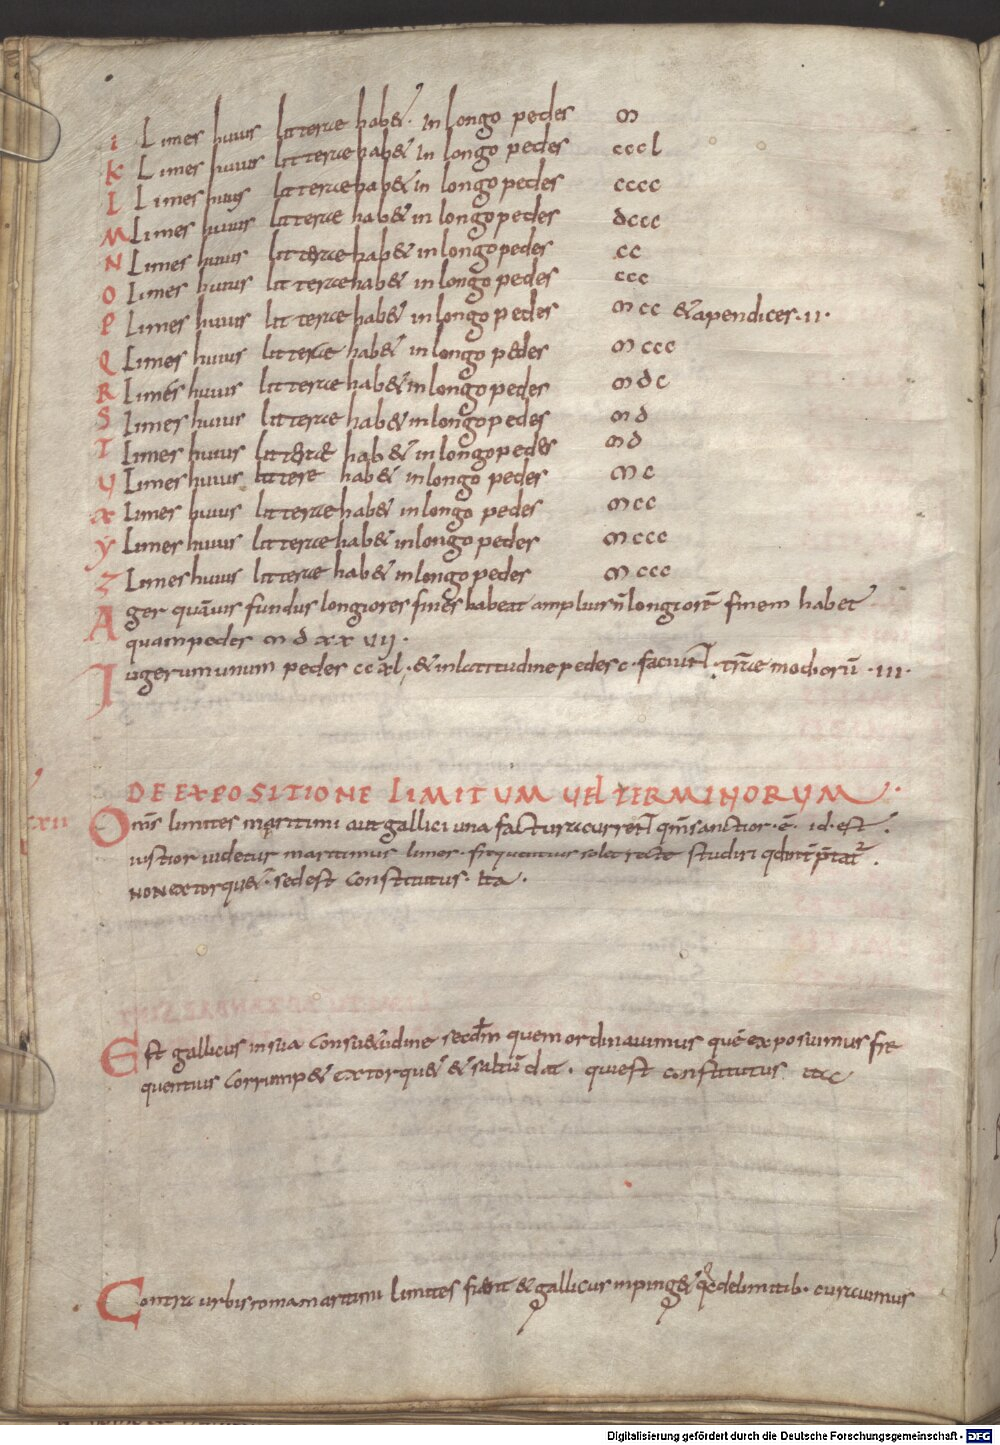 I Limes huius litterae habet in longo pedes ꝏ
K Limes huius litterae habet in longo pedes cccl
L Limes huius litterae habet in longo pedes cccc
M Limes huius litterae habet in longo pedes dccc
N Limes huius litterae habet in longo pedes cc
O Limes huius litterae habet in longo pedes ccc
P Limes huius litterae habet in longo pedes ꝏ cc & apendices · II ·
Q Limes huius litterae habet in longo pedes ꝏ ccc
R Limes huius litterae habet in longo pedes ꝏ dc
S Limes huius litterae habet in longo pedes ꝏ d
T Limes huius litterae habet in longo pedes ꝏ d
V Limes huius littere habet in longo pedes ꝏ c
X Limes huius litterae habet in longo pedes ꝏ cc
Y Limes huius litterae habet in longo pedes ꝏ ccc
Z Limes huius litterae habet in longo pedes ꝏ ccc
Ager quāuis fundus longiores fines habeat amplius ñ longiorē finem habet
quam pedes ꝏ d xx VII ·
Iugerum unum pedes cc xl · & in latitudine pedes c · faciunt · tr̄ae modiorū · III ·
DE EXPOSITIONE LIMITUM VEL TERMINORVM ·
XII
Om̄s limites maritimi aut gallici una factura current qm̄ sanctior · ē · id · est
iustior uidetur maritimus limes · frequentius solet recte studiri
non extorquet · sed est constitutus · ita ·
Est gallicus in sua consuetudine secdm̄ quem ordinauimus quē exposuimus fre
quentius corrumpet extorquet & saltū dat · qui est constitutus ita
Contra urbis roma maritimi limites fient & gallicus inpinget de limitib · curauimus
Digitalisierung gefördert durch die Deutsche Forschungsgemeinschaft - DFG